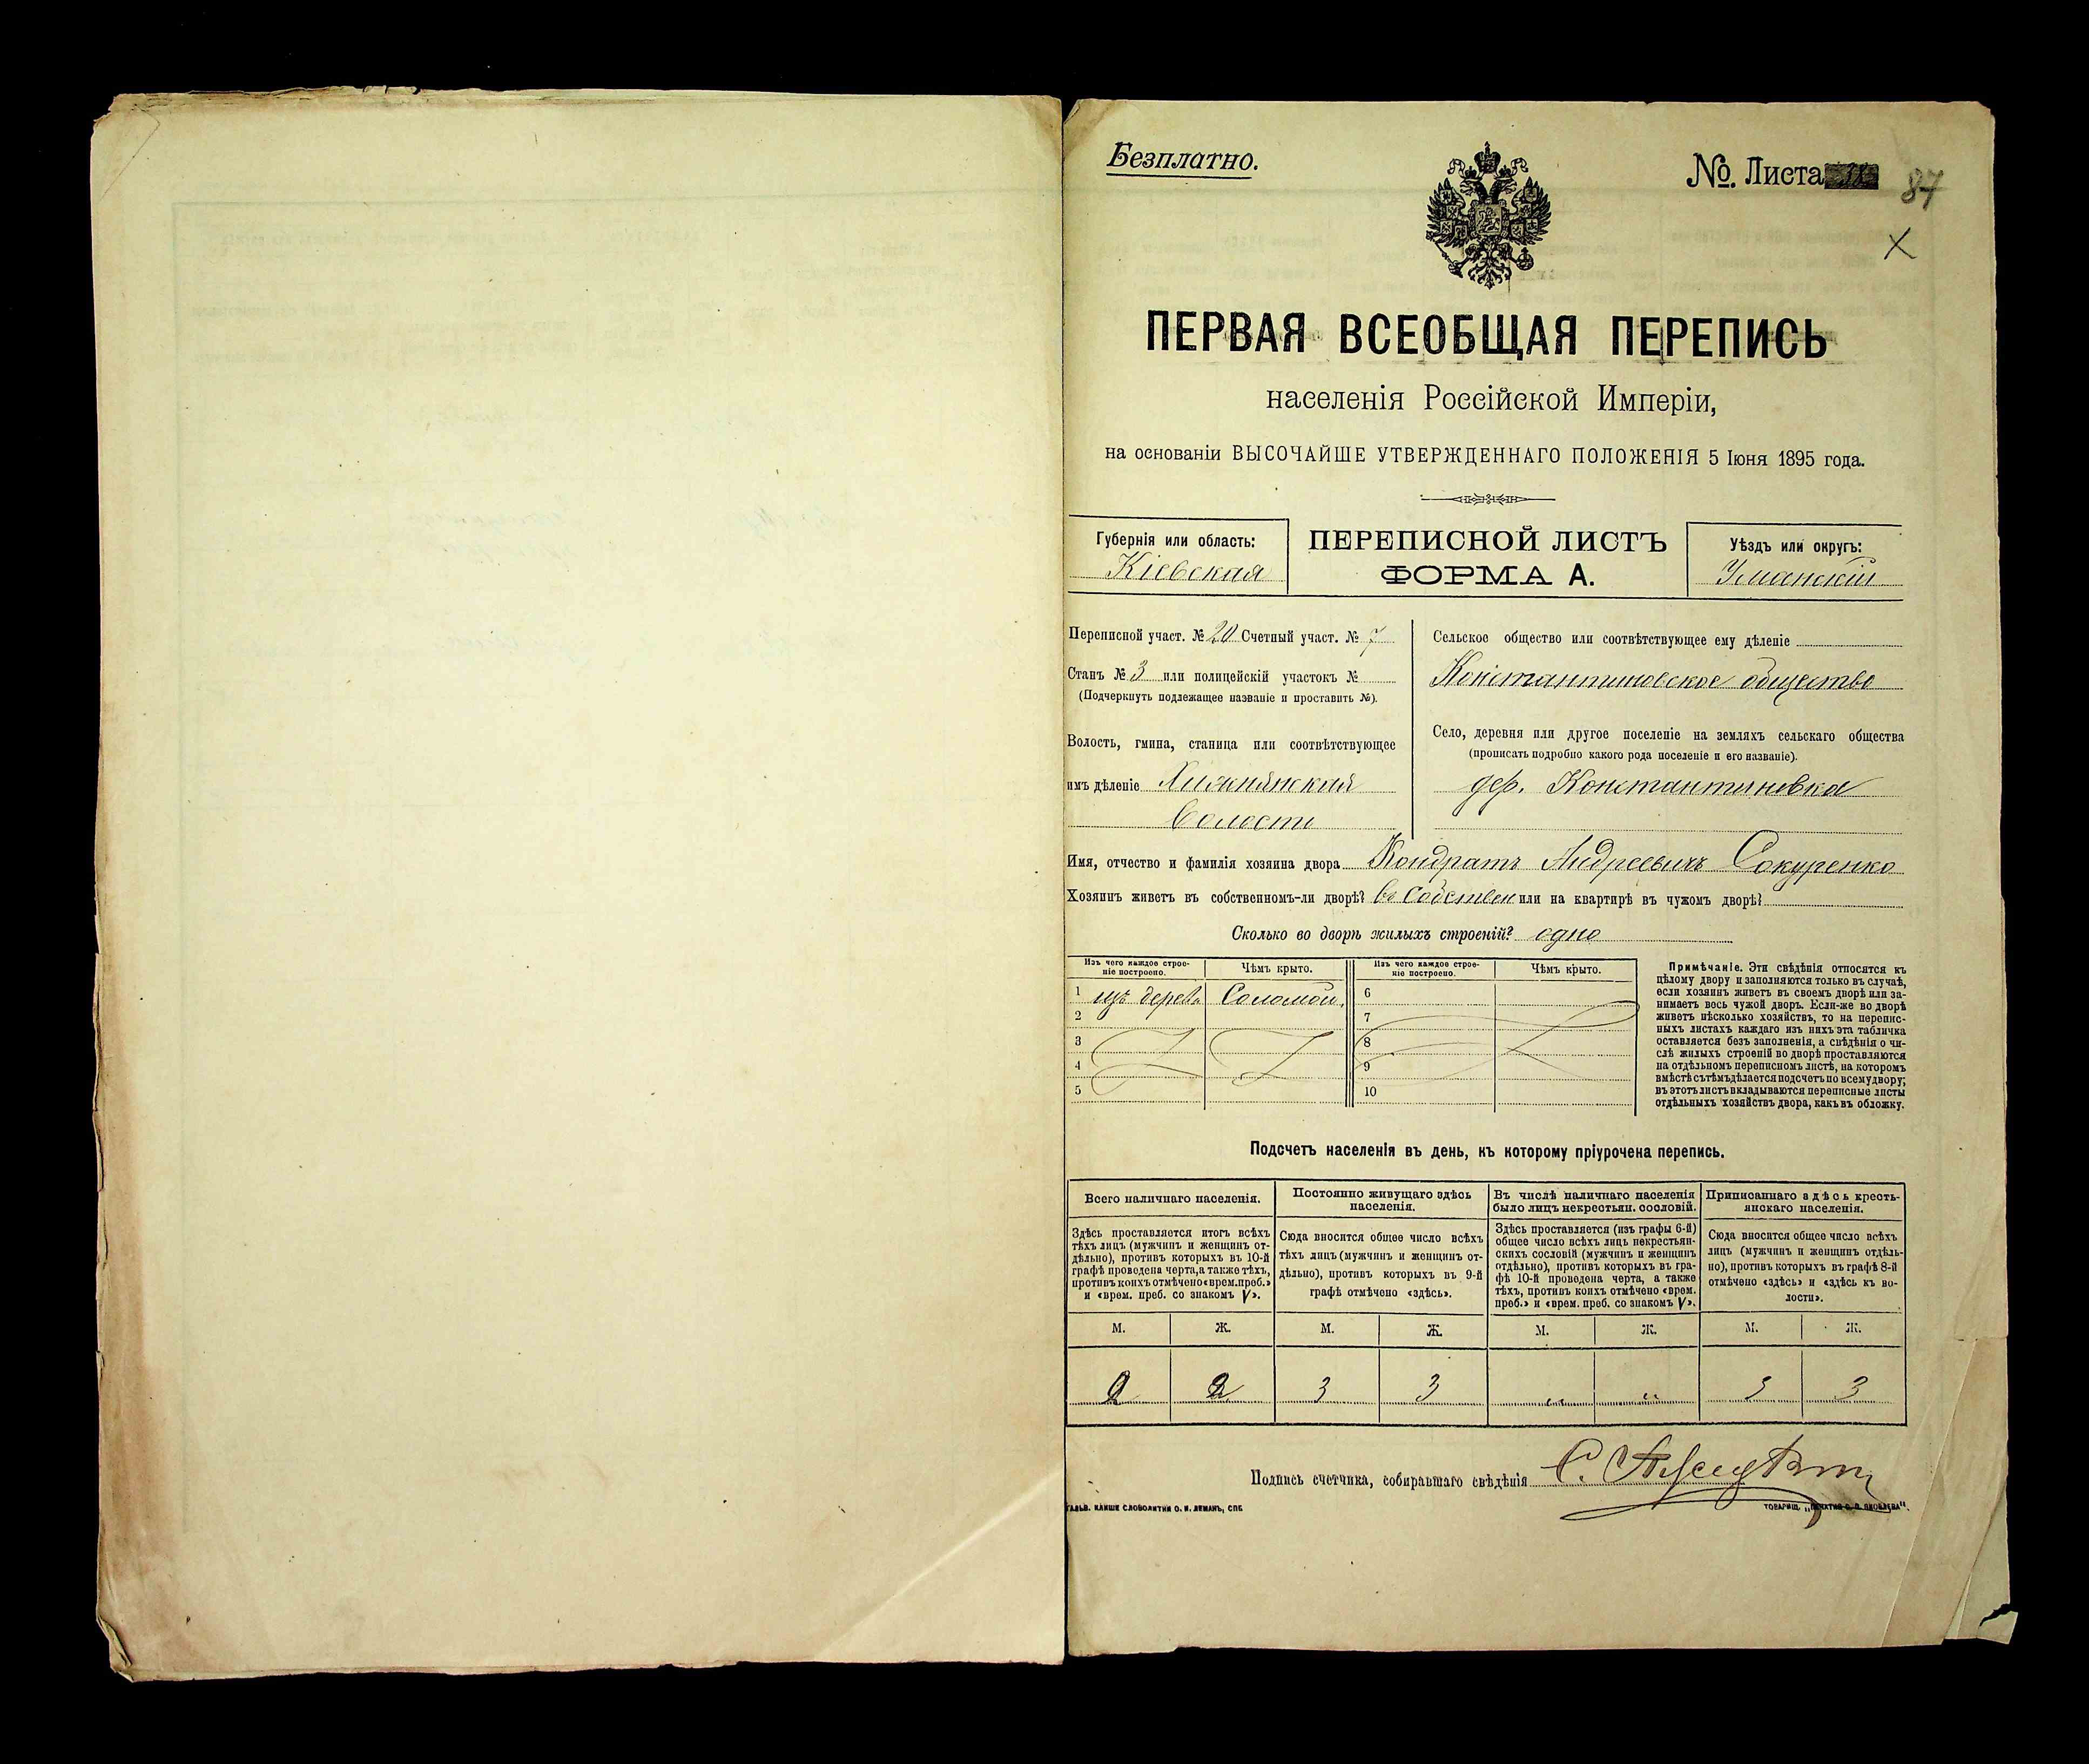 Безплатно.
№. Листа
87
X
ПЕРВАЯ ВСЕОБЩАЯ ПЕРЕПИСЬ
населенія Россійской Имперіи,
на основаніи ВЫСОЧАЙШЕ УТВЕРЖДЕННАГО ПОЛОЖЕНІЯ 5 Іюня 1895 года.
Губернія или область:
Кіевская
ПЕРЕПИСНОЙ ЛИСТЪ
ФОРМА А.
Уѣздъ или округъ:
Уманскій
Переписной участ. № 20 Счетный участ. № 7
Станъ № 3 или полицейскій участокъ №
(Подчеркнуть подлежащее названіе и проставить №).
Волость, гмина, станица или соотвѣтствующее
имъ дѣленіе Хижнянская
Волости
Сельское общество или соотвѣтствующее ему дѣленіе
Константиновское общество
Село, деревня или другое поселеніе на земляхъ сельскаго общества
(прописать подробно какого рода поселеніе и его названіе).
дер. Константиновка
Имя, отчество и фамилія хозяина двора Кондратъ Андреевичъ Сокуренко
Хозяинъ живетъ въ собственномъ-ли дворѣ? въ собствен или на квартирѣ въ чужомъ дворѣ?
Сколько во дворѣ жилыхъ строеній? одно
Изъ чего каждое строе-
ніе построено.
Чѣмъ крыто.
Изъ чего каждое строе-
ніе построено.
Чѣмъ крыто.
1 изъ дерева Соломой. 6
2 7
3 8
4 9
5 10
Примѣчаніе. Эти свѣдѣнія относятся къ
цѣлому двору и заполняются только въ случаѣ,
если хозяинъ живетъ въ своемъ дворѣ или за-
нимаетъ весь чужой дворъ. Если-же во дворѣ
живетъ нѣсколько хозяйствъ, то на перепис-
ныхъ листахъ каждаго изъ нихъ эта табличка
оставляется безъ заполненія, а свѣдѣнія о чи-
слѣ жилыхъ строеній во дворѣ проставляются
на отдѣльномъ переписномъ листѣ, на которомъ
вмѣстѣ съ тѣмъ дѣлается подсчетъ по всему двору;
въ этотъ листъ вкладываются переписные листы
отдѣльныхъ хозяйствъ двора, какъ въ обложку.
Подсчетъ населенія въ день, къ которому пріурочена перепись.
Всего наличнаго населенія.
Здѣсь проставляется итогъ всѣхъ
тѣхъ лицъ (мужчинъ и женщинъ от-
дѣльно), противъ которыхъ въ 10-й
графѣ проведена черта, а также тѣхъ,
противъ коихъ отмѣчено «врем. преб.»
и «врем. преб. со знакомъ V».
Постоянно живущаго здѣсь
населенія.
Сюда вносится общее число всѣхъ
тѣхъ лицъ (мужчинъ и женщинъ от-
дѣльно), противъ которыхъ въ 9-й
графѣ отмѣчено «здѣсь».
Въ числѣ наличнаго населенія
было лицъ некрестьян. сословій.
Здѣсь проставляется (изъ графы 6-й)
общее число всѣхъ лицъ некрестьян-
скихъ сословій (мужчинъ и женщинъ
отдѣльно), противъ которыхъ въ гра-
фѣ 10-й проведена черта, а также
тѣхъ, противъ коихъ отмѣчено «врем.
преб.» и «врем. преб. со знакомъ V».
Приписаннаго здѣсь кресть-
янскаго населенія.
Сюда вносится общее число всѣхъ
лицъ (мужчинъ и женщинъ отдѣль-
но), противъ которыхъ въ графѣ 8-й
отмѣчено «здѣсь» и «здѣсь къ во-
лости».
М. Ж. М. Ж. М. Ж. М. Ж.
2 2 3 3 „ „ 3 3
Подпись счетчика, собиравшаго свѣдѣнія
ГАЛЬВ. КЛИШЕ СЛОВОЛИТНИ О. И. ЛЕМАНЪ, СПБ.
ТОВАРИЩ. „ПЕЧАТНЯ С. П. ЯКОВЛЕВА".